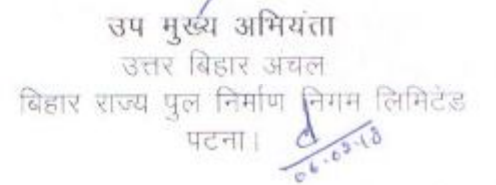 उप मुख्य अभियंता
उत्तर बिहार अंचल
बिहार राज्य पुल निर्माण निगम लिमिटेड
पटना।